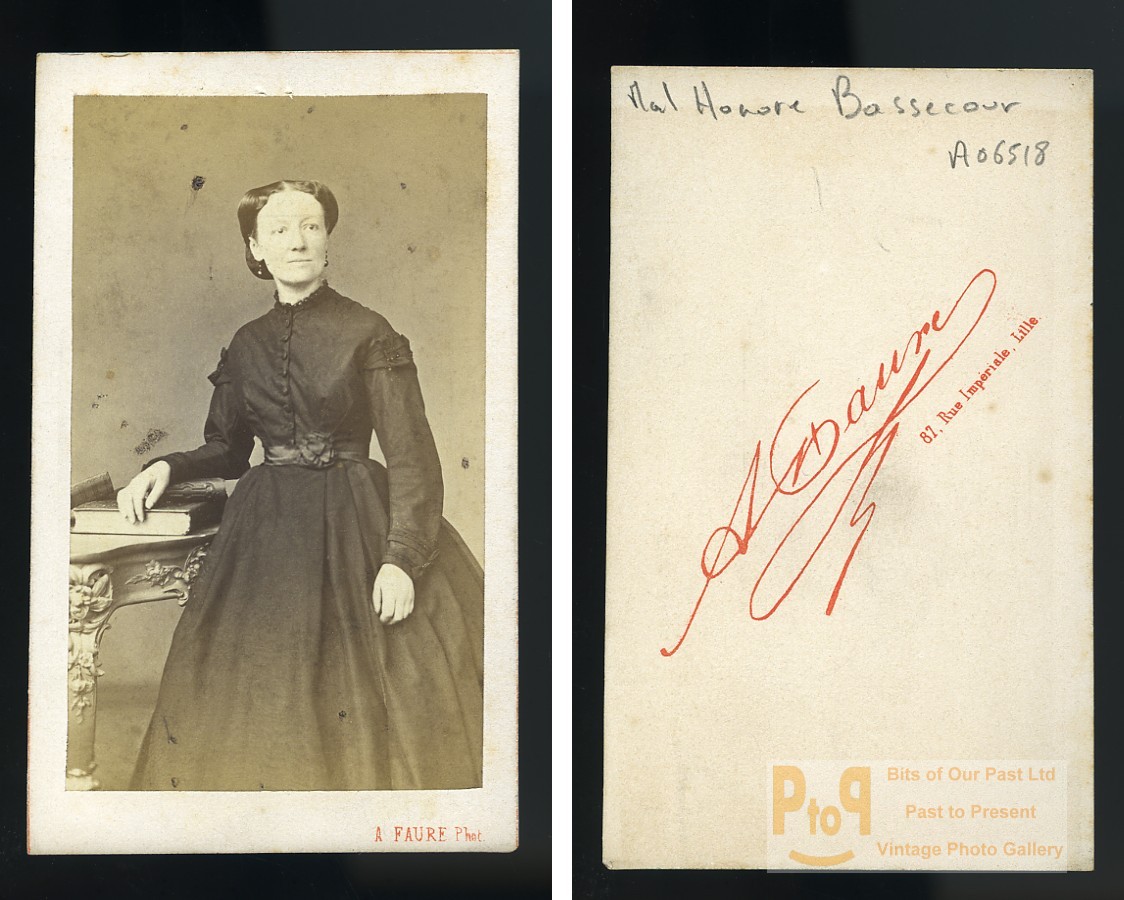 A FAURE Phot.
Mal Honore Bassecour
A06518
A Faure
87, Rue Impériale, Lille.
PtoP
Bits of Our Past Ltd
Past to Present
Vintage Photo Gallery